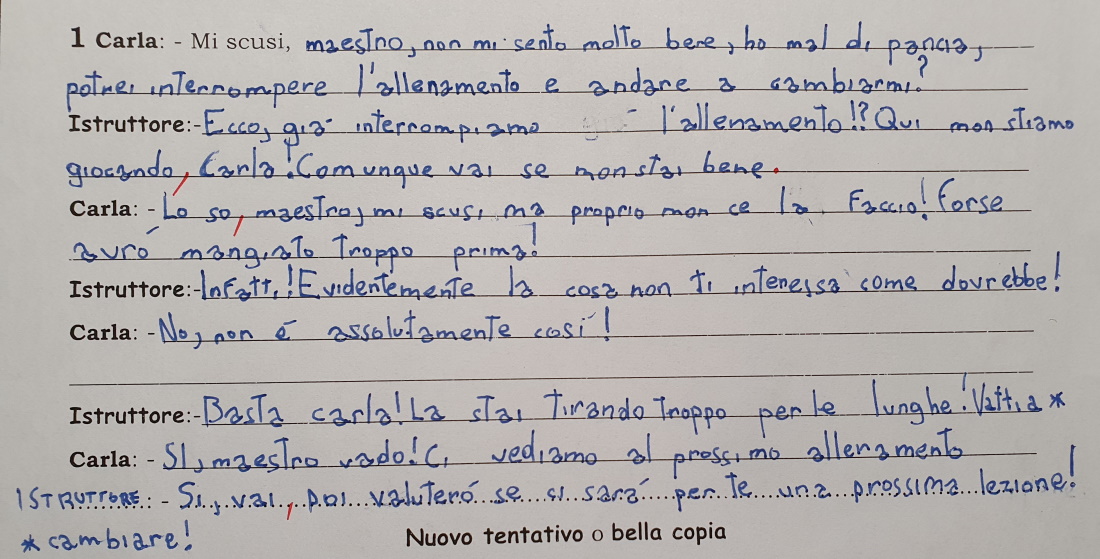 1 Carla: - Mi scusi, maestro, non mi sento molto bene, ho mal di pancia,
potrei interrompere l'allenamento e andare a cambiarmi?
Istruttore:-Ecco, già interrompiamo l'allenamento!? Qui non stiamo
giocando, Carla! Comunque vai se non stai bene.
Carla: -Lo so, maestro, mi scusi, ma proprio non ce la faccio! Forse
avró mangiato troppo prima!
Istruttore:-Infatti! Evidentemente la cosa non ti interessa come dovrebbe!
Carla: -No, non é assolutamente cosí!
Istruttore:-Basta carla! La stai tirando troppo per le lunghe! Vatti a *
Carla: - SI, maestro vado! Ci vediamo al prossimo allenamento
ISTRUTTORE: - Si, vai, poi valuteró se ci sará per te una prossima lezione!
* cambiare!
Nuovo tentativo o bella copia